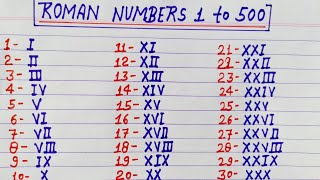 ROMAN NUMBERS 1 to 500
1- I
2- II
3- III
4- IV
5- V
6- VI
7- VII
8- VIII
9- IX
10- X
11- XI
12- XII
13- XIII
14- XIV
15- XV
16- XVI
17- XVII
18- XVIII
19- XIX
20- XX
21- XXI
22- XXII
23- XXIII
24- XXIV
25- XXV
26- XXVI
27- XXVII
28- XXVIII
29- XXIX
30- XXX